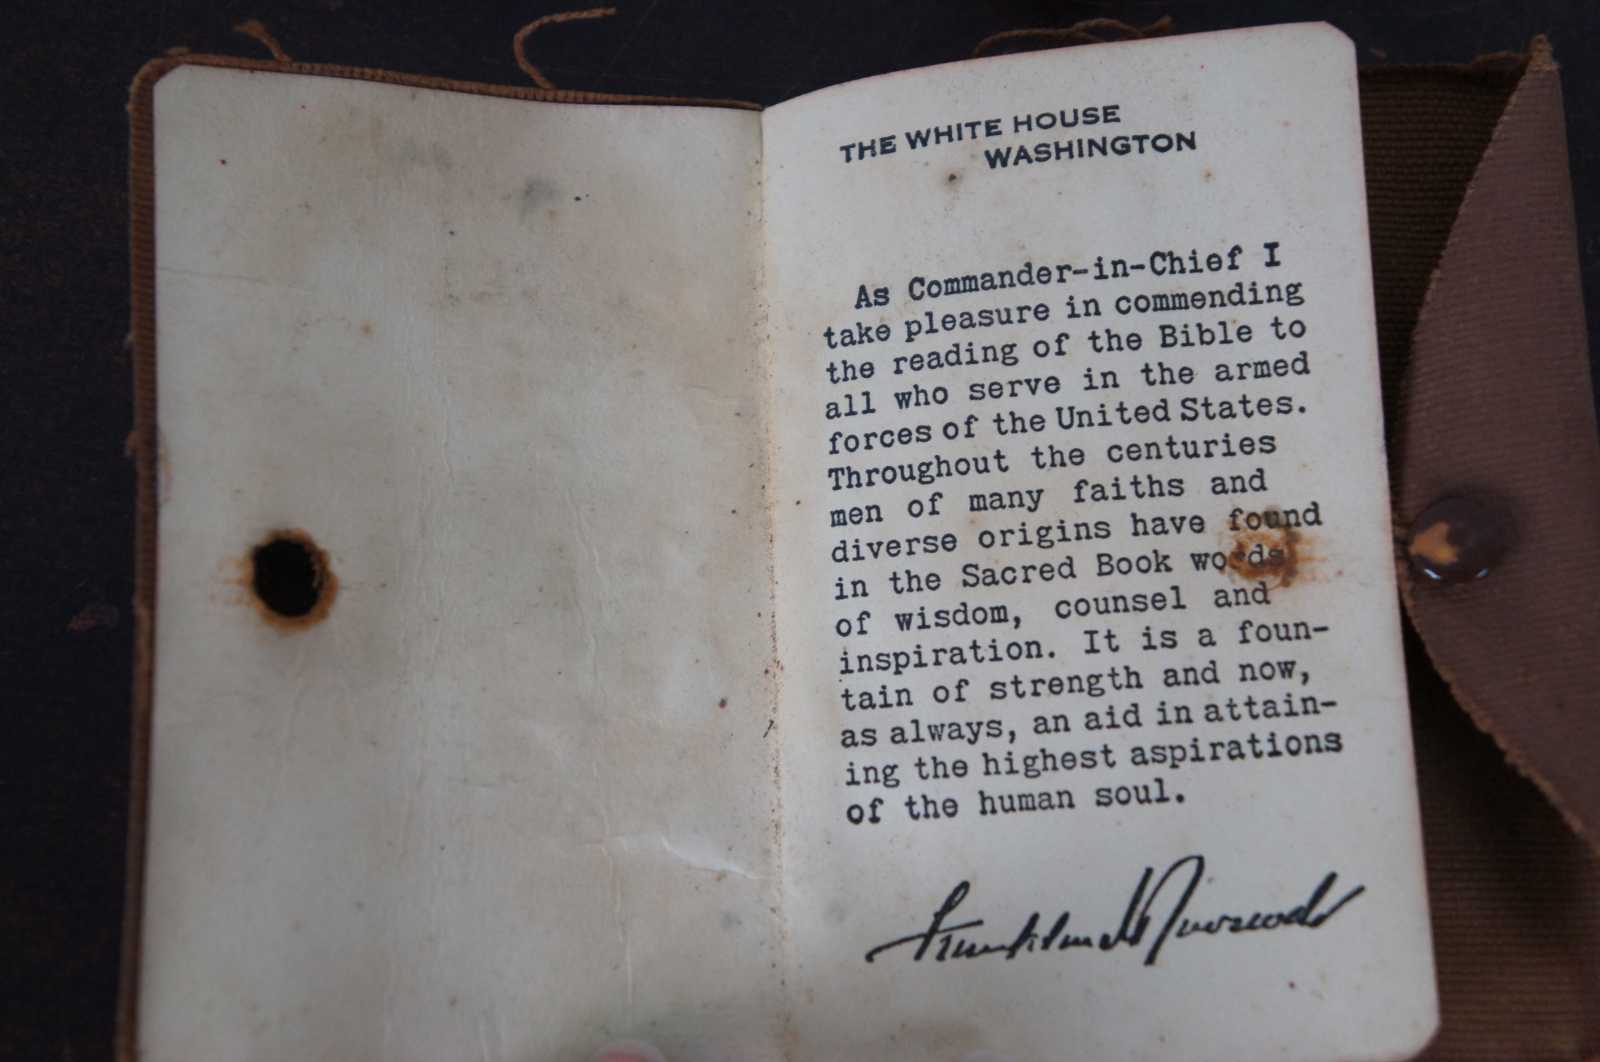 THE WHITE HOUSE
WASHINGTON
As Commander-in-Chief I
take pleasure in commending
the reading of the Bible to
all who serve in the armed
forces of the United States.
Throughout the centuries
men of many faiths and
diverse origins have found
in the Sacred Book words
of wisdom, counsel and
inspiration. It is a foun-
tain of strength and now,
as always, an aid in attain-
ing the highest aspirations
of the human soul.
Franklin D Roosevelt